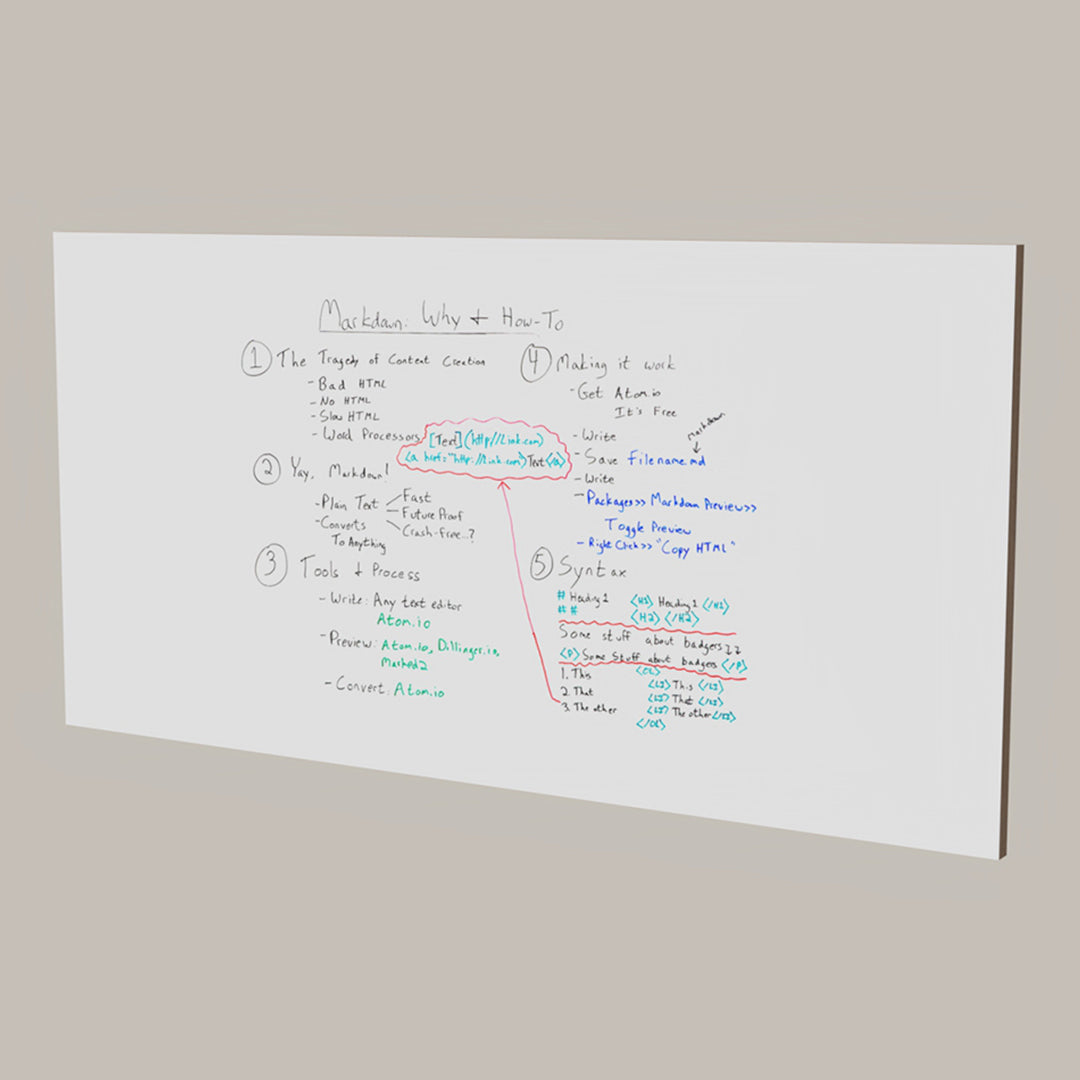 Markdown: Why + How-To
1 The Tragedy of Content Creation
- Bad HTML
- No HTML
- Slow HTML
- Word Processors
2 Yay, Markdown!
- Plain Text
Fast
Future Proof
Crash-free...?
- Converts
To Anything
3 Tools + Process
- Write: Any text editor
Atom.io
- Preview: Atom.io, Dillinger.io,
Marked2
- Convert: Atom.io
[Text](http//Link.com)
<a href="http://Link.com">Text</a>
4 Making it work
- Get Atom.io
It's Free
- Write
Markdown
- Save Filename.md
- Write
- Packages>> Markdown Preview>>
Toggle Preview
- Right Click>> "Copy HTML"
5 Syntax
# Heading 1 <H1> Heading 1 </H1>
## <H2> </H2>
Some stuff about badgers
<P> Some Stuff about badgers </P>
1. This <OL>
<LI> This </LI>
2. That <LI> That </LI>
3. The other <LI> The other </LI>
</OL>